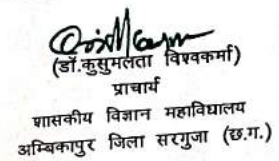 (डॉ.कुसुमलता विश्वकर्मा)
प्राचार्य
शासकीय विज्ञान महाविद्यालय
अम्बिकापुर जिला सरगुजा (छ.ग.)